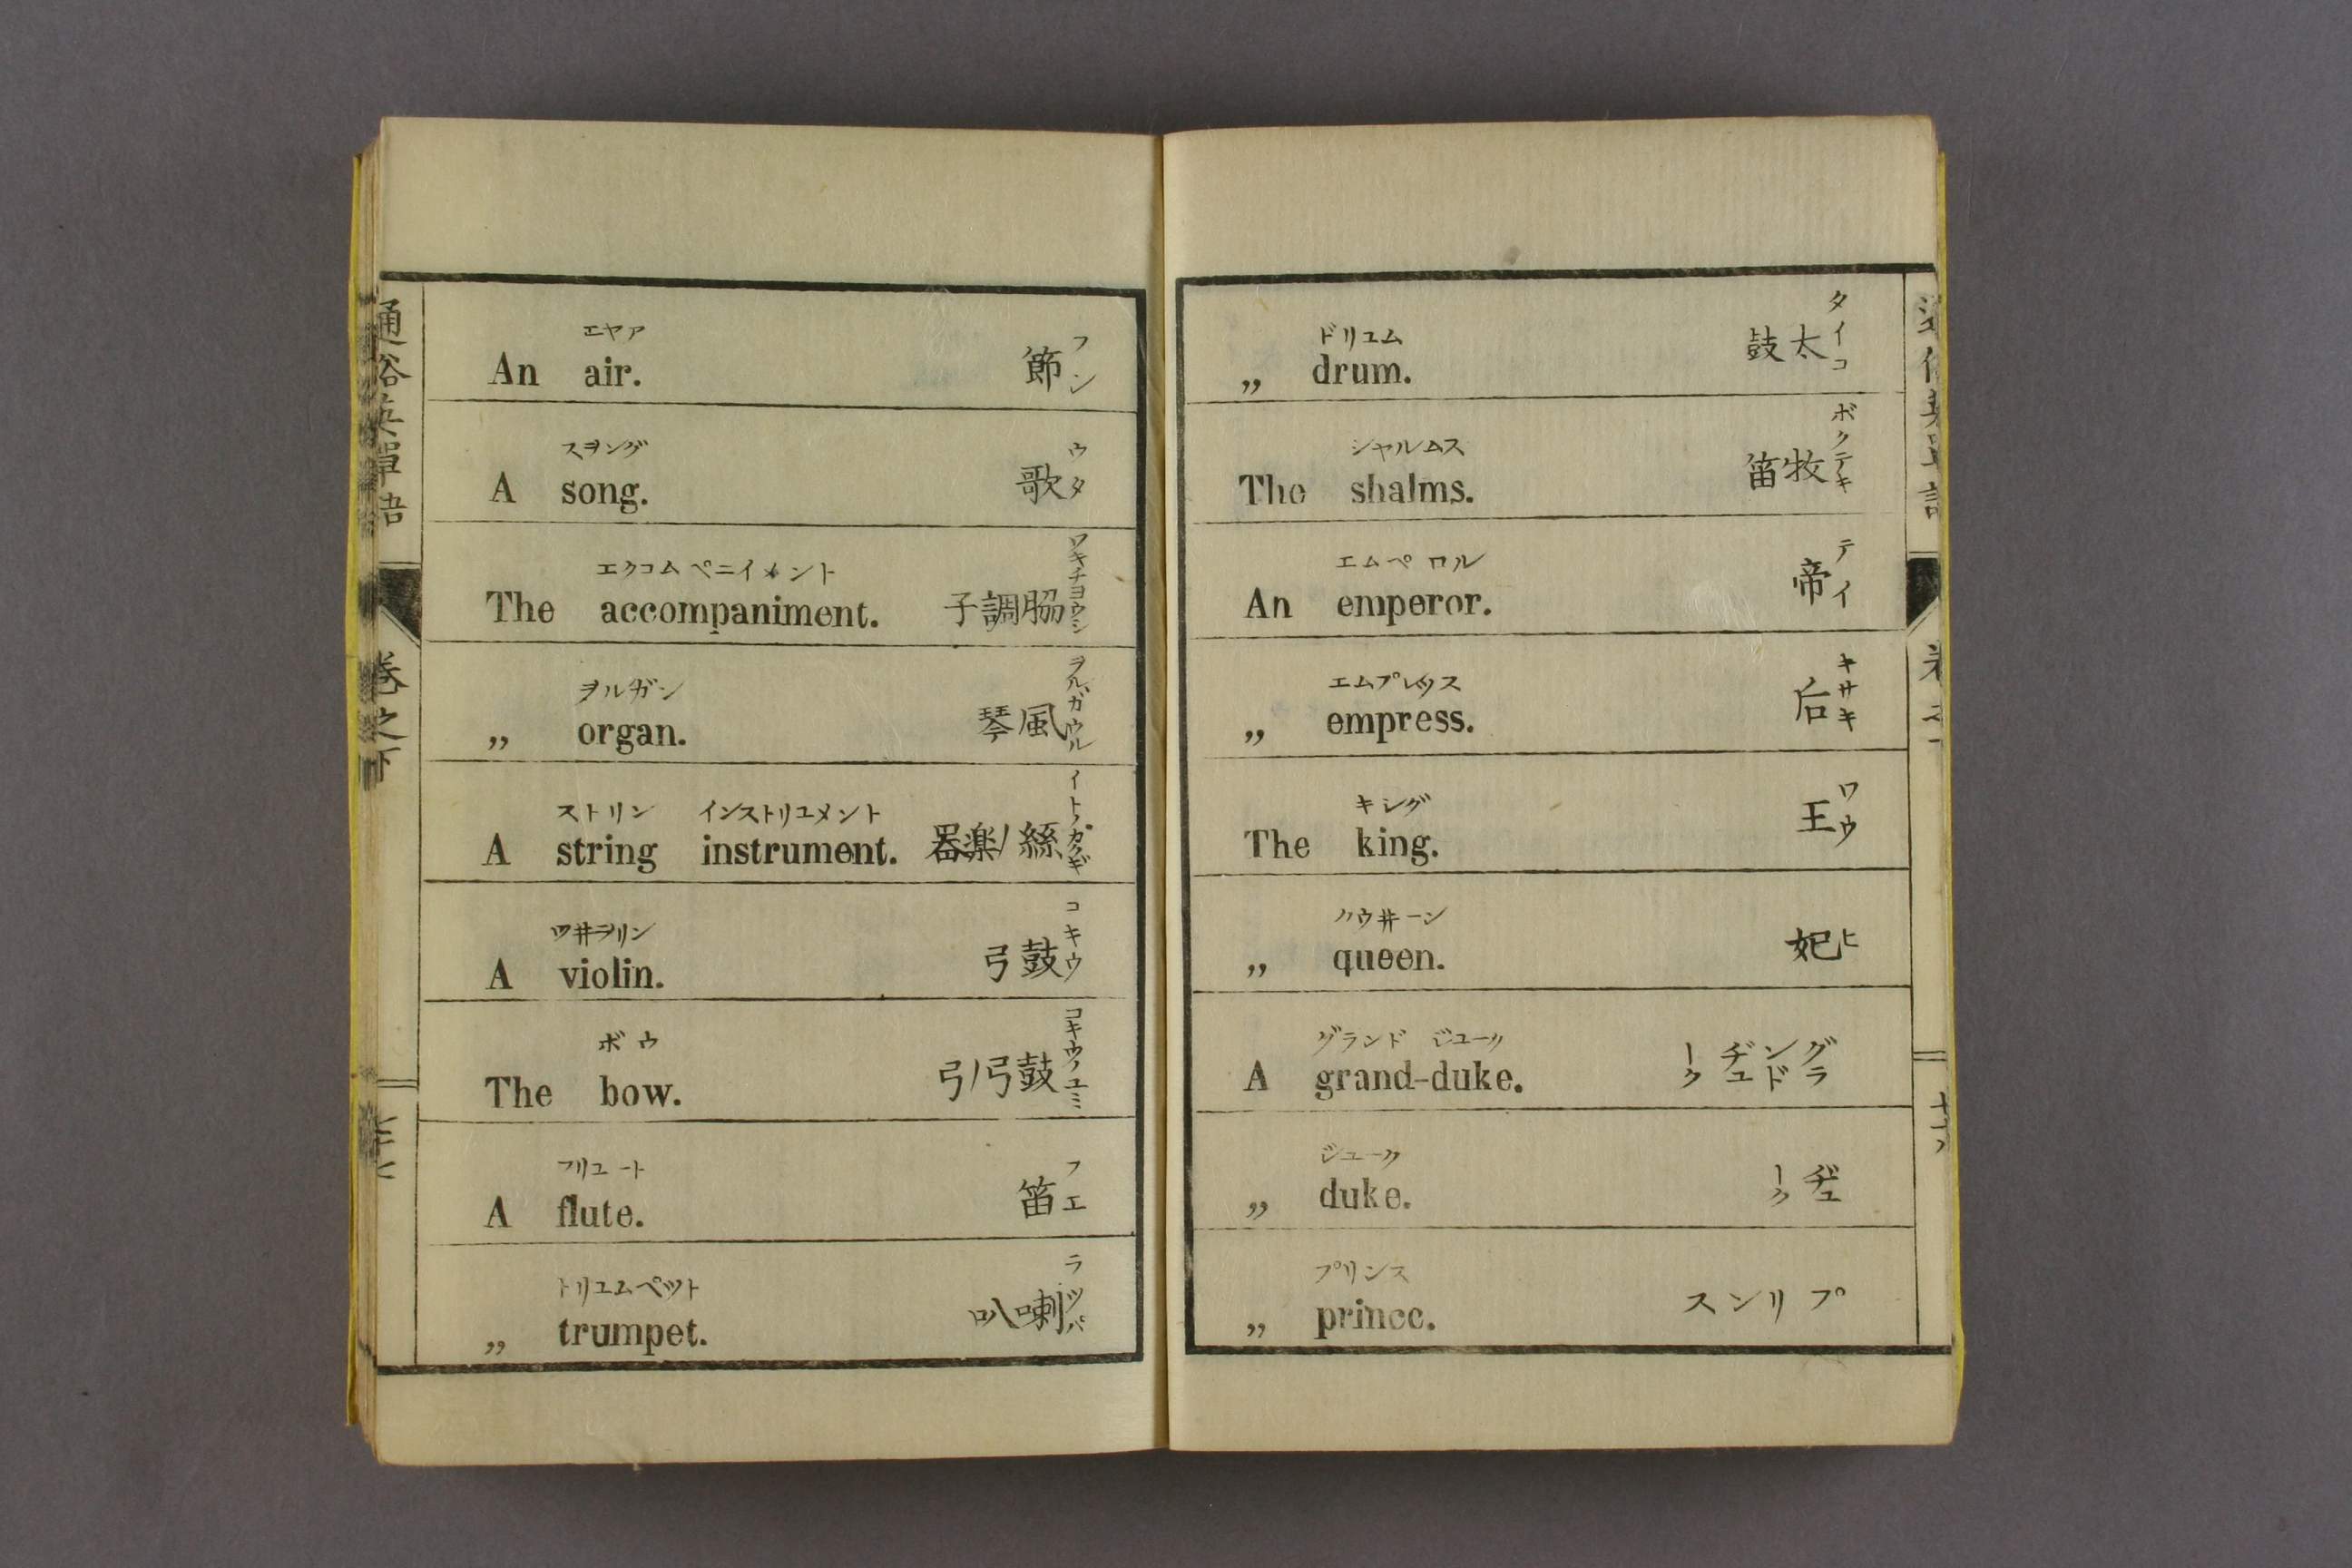 通俗英單語
巻之下
エヤァ
An air.
節
フシ
スヲング
A song.
歌
ウタ
エクコムペニイメント
The accompaniment.
脇調子
ワキチヨウシ
ヲルガン
„ organ.
風琴
ヲルガウル
ストリン インストリユメント
A string instrument.
絲ノ楽器
イトノガクギ
ワ井ヲリン
A violin.
鼓弓
コキウ
ボウ
The bow.
鼓弓ノ弓
コキウノユミ
フリユート
A flute.
笛
フエ
トリユムペツト
„ trumpet.
喇叭
ラツパ
ドリユム
„ drum.
太鼓
タイコ
シャルムス
The shalms.
牧笛
ボクテキ
エムペロル
An emperor.
帝
テイ
エムプレッス
„ empress.
后
キサキ
キング
The king.
王
ワウ
クウ井ーン
„ queen.
妃
ヒ
グランド ジユーク
A grand-duke.
グランドヂユーク
ジユーク
„ duke.
ヂユーク
プリンス
„ prince.
プリンス